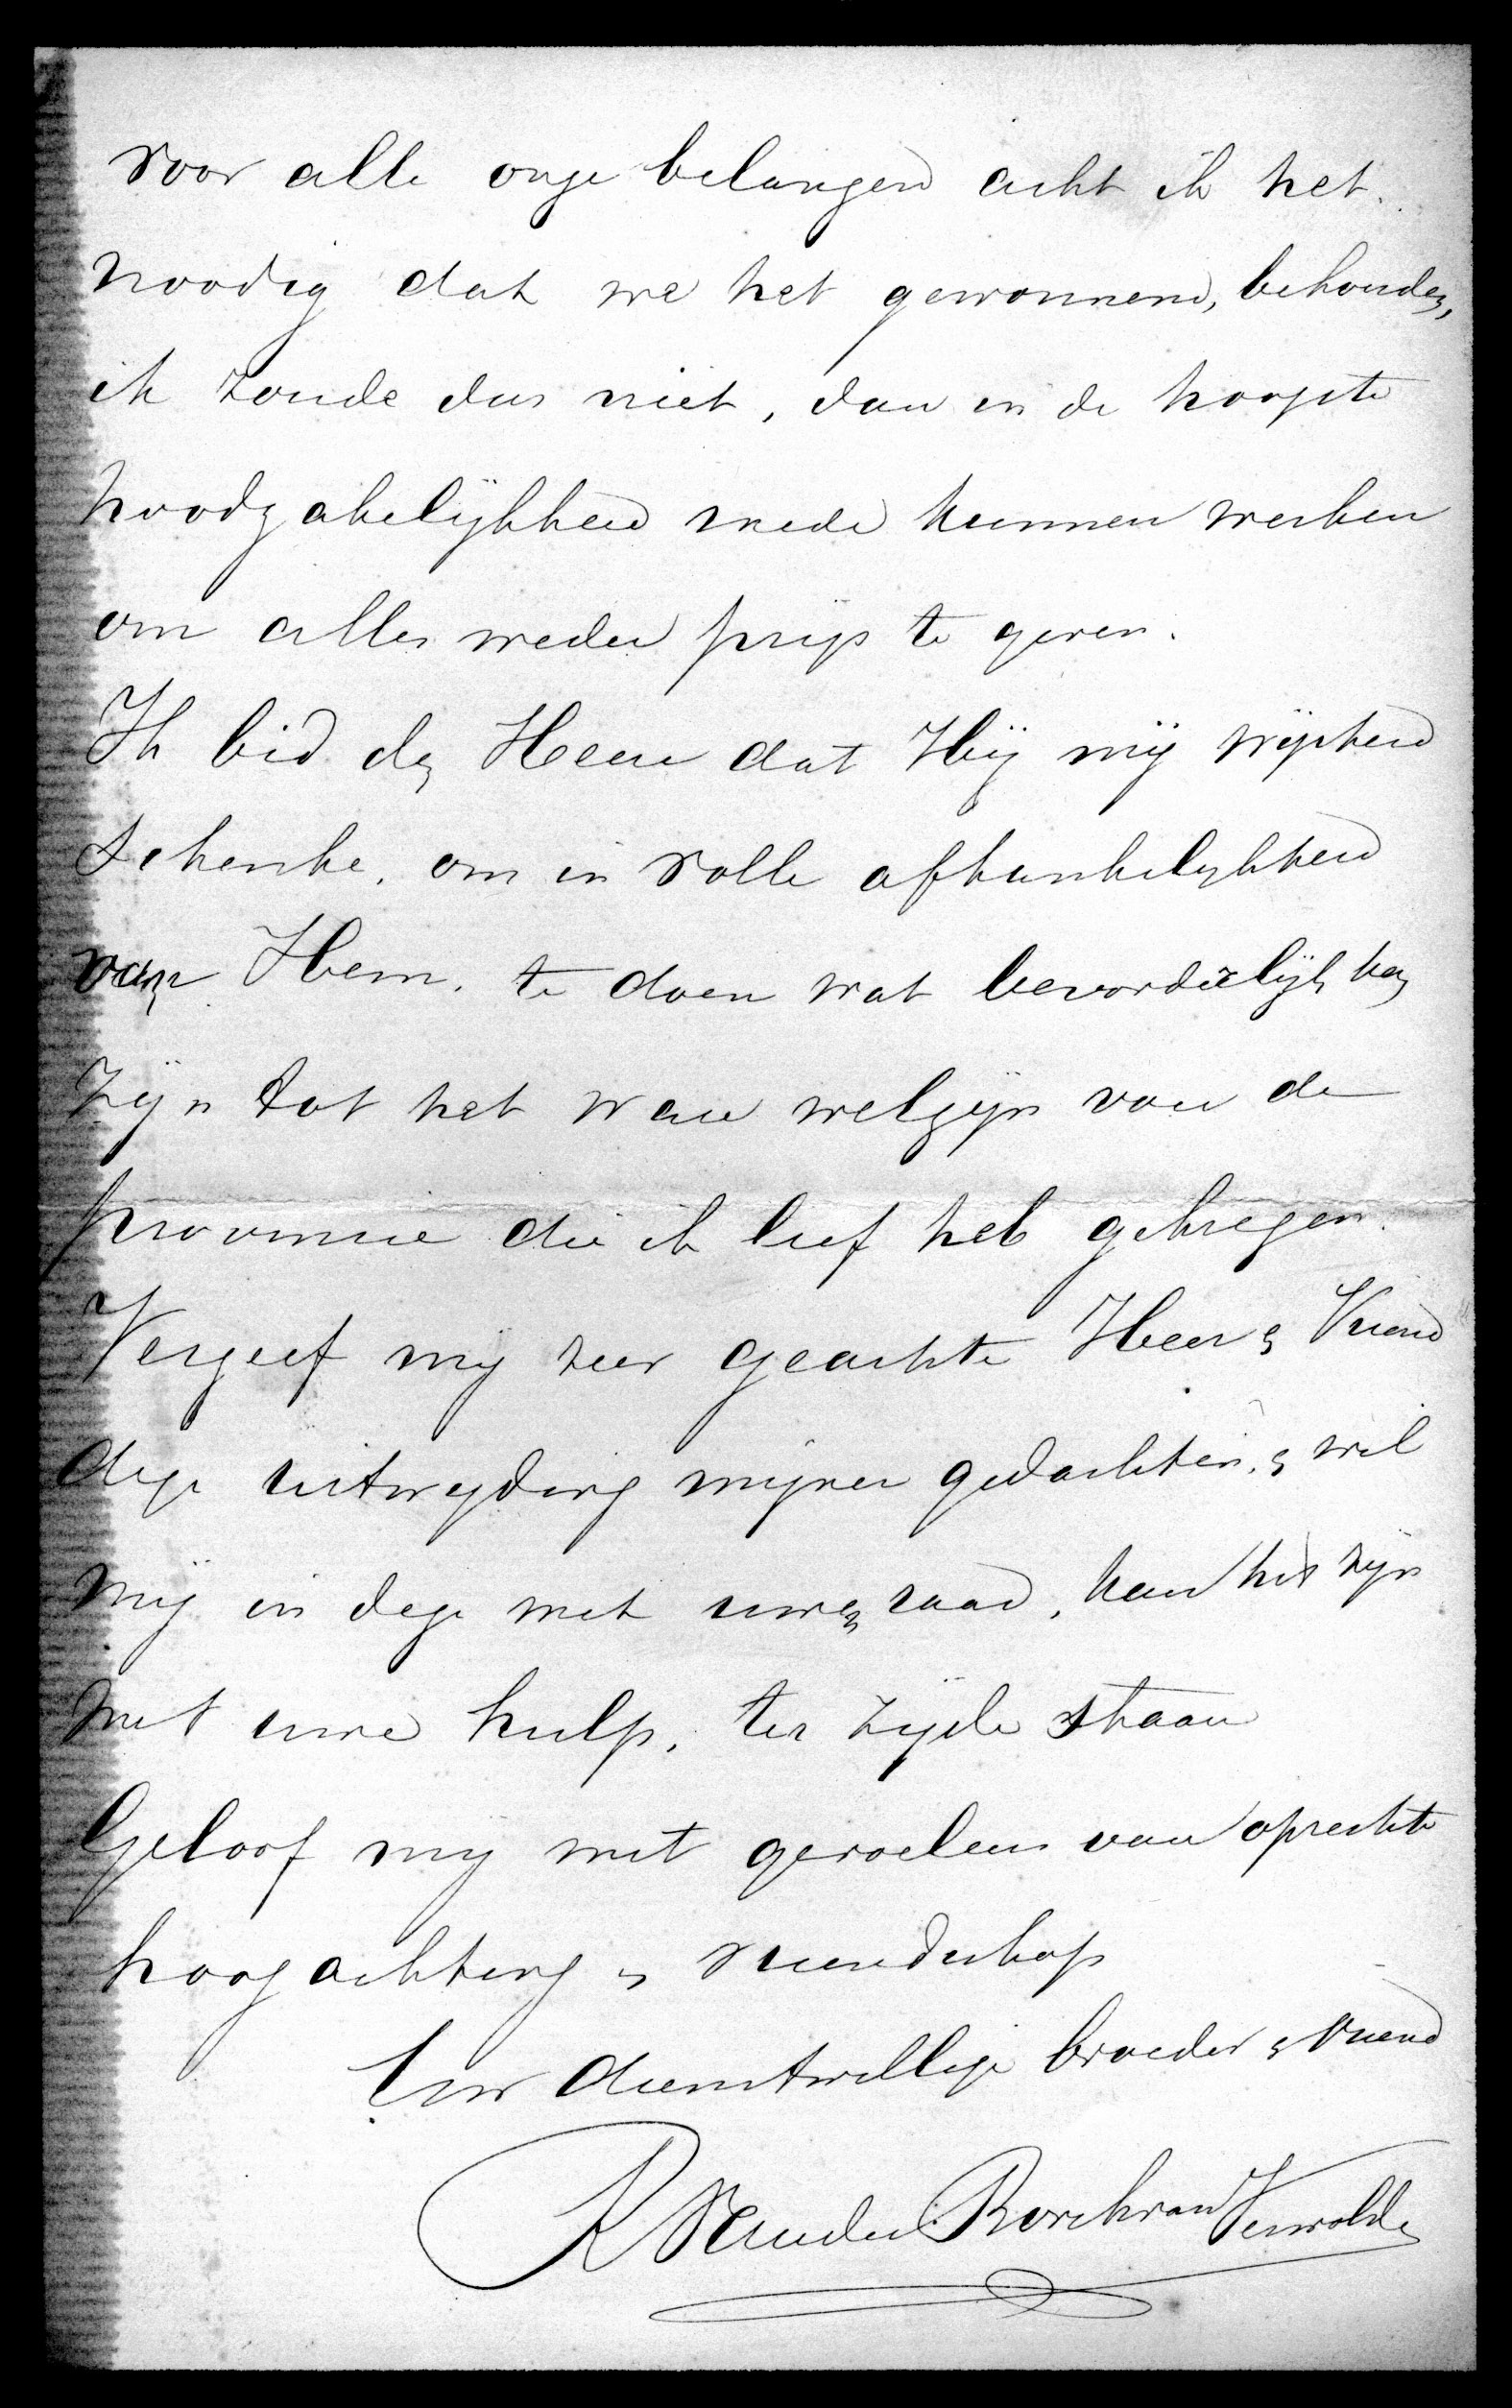 voor alle onze belangen acht ik het
noodig dat we het gewonnene, behouden,
ik zoude dus niet, dan in de hoogste
noodzakelijkheid mede kunnen werken
om alles weder prijs te geven.
Ik bid den Heere dat Hij mij wijsheid
schenke, om in volle afhankelijkheid
van Hem, te doen wat bevorderlijk kan
zijn tot het ware welzijn van de
provincie die ik lief heb gekregen.
Vergeef mij zeer geachte Heer en Vriend
deze uitwijding mijner gedachten, en wil
mij in deze met uwen raad, kan het zijn
met uwe hulp, ter zijde staan
Geloof mij met gevoelens van oprechte
hoogachting en vriendschap
Uw dienstwillige broeder en Vriend
van der Borch van Verwolde